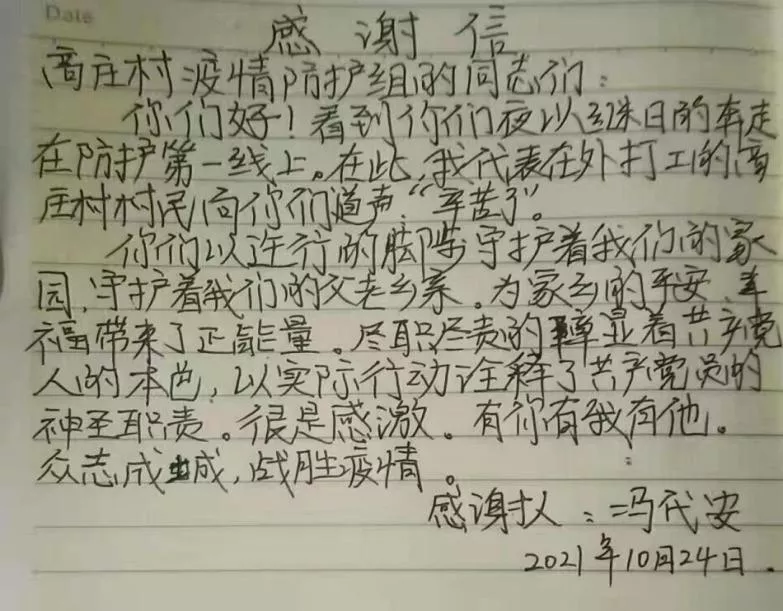 Date
感谢信
商庄村疫情防护组的同志们：
你们好！看到你们夜以继日的奔走
在防护第一线上。在此，我代表在外打工的商
庄村村民向你们道声“辛苦了”。
你们以逆行的脚步守护着我们的家
园，守护着我们的父老乡亲。为家乡的平安、幸
福带来了正能量。尽职尽责的彰显着共产党
人的本色，以实际行动诠释了共产党员的
神圣职责。很是感激。有你有我有他。
众志成城，战胜疫情。
感谢人：冯代安
2021年10月24日.